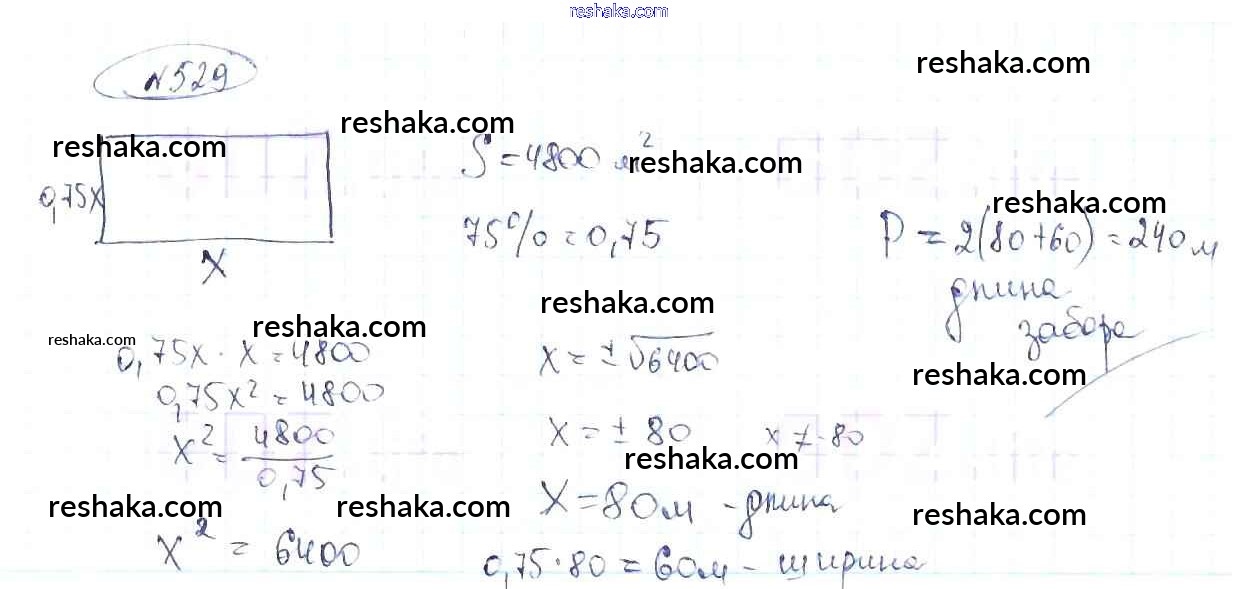 reshaka.com
№529
reshaka.com
reshaka.com
reshaka.com
0,75x
x
S = 4800 м²
reshaka.com
75% = 0,75
reshaka.com
P = 2(80+60) = 240 м
длина
забора
reshaka.com
reshaka.com
reshaka.com
reshaka.com
0,75x · x = 4800
0,75x² = 4800
x² = 4800/0,75
reshaka.com
reshaka.com
x² = 6400
x = ±√6400
x = ± 80 x ≠ -80
reshaka.com
x = 80м - длина
reshaka.com
0,75·80 = 60м - ширина